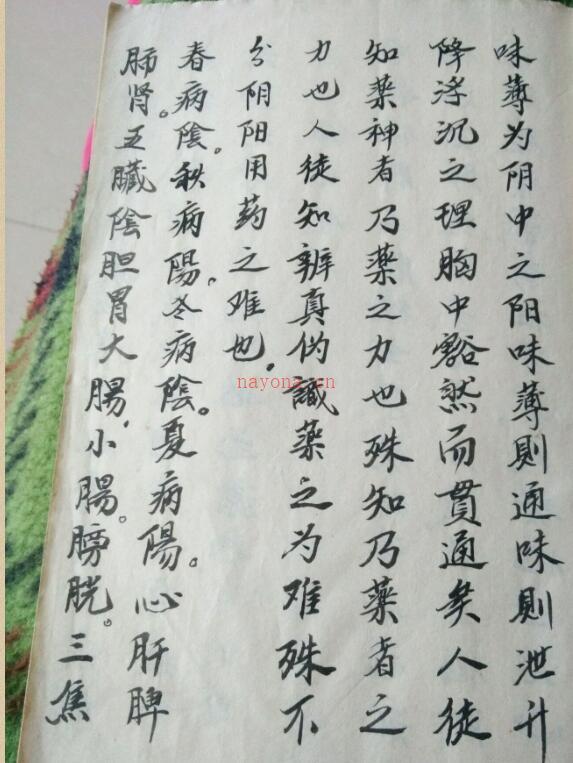 味薄为阴中之阳味薄則通味則泄升
降浮沉之理胸中豁然而貫通矣人徒
知薬神者乃薬之力也殊知乃薬者之
力也人徒知辨真伪識薬之为难殊不
分阴阳用药之难也.
春病陰。秋病陽。冬病陰。夏病陽。心肝脾
肺肾。五臟陰胆胃大腸,小腸。膀胱。三焦
nayona.cn